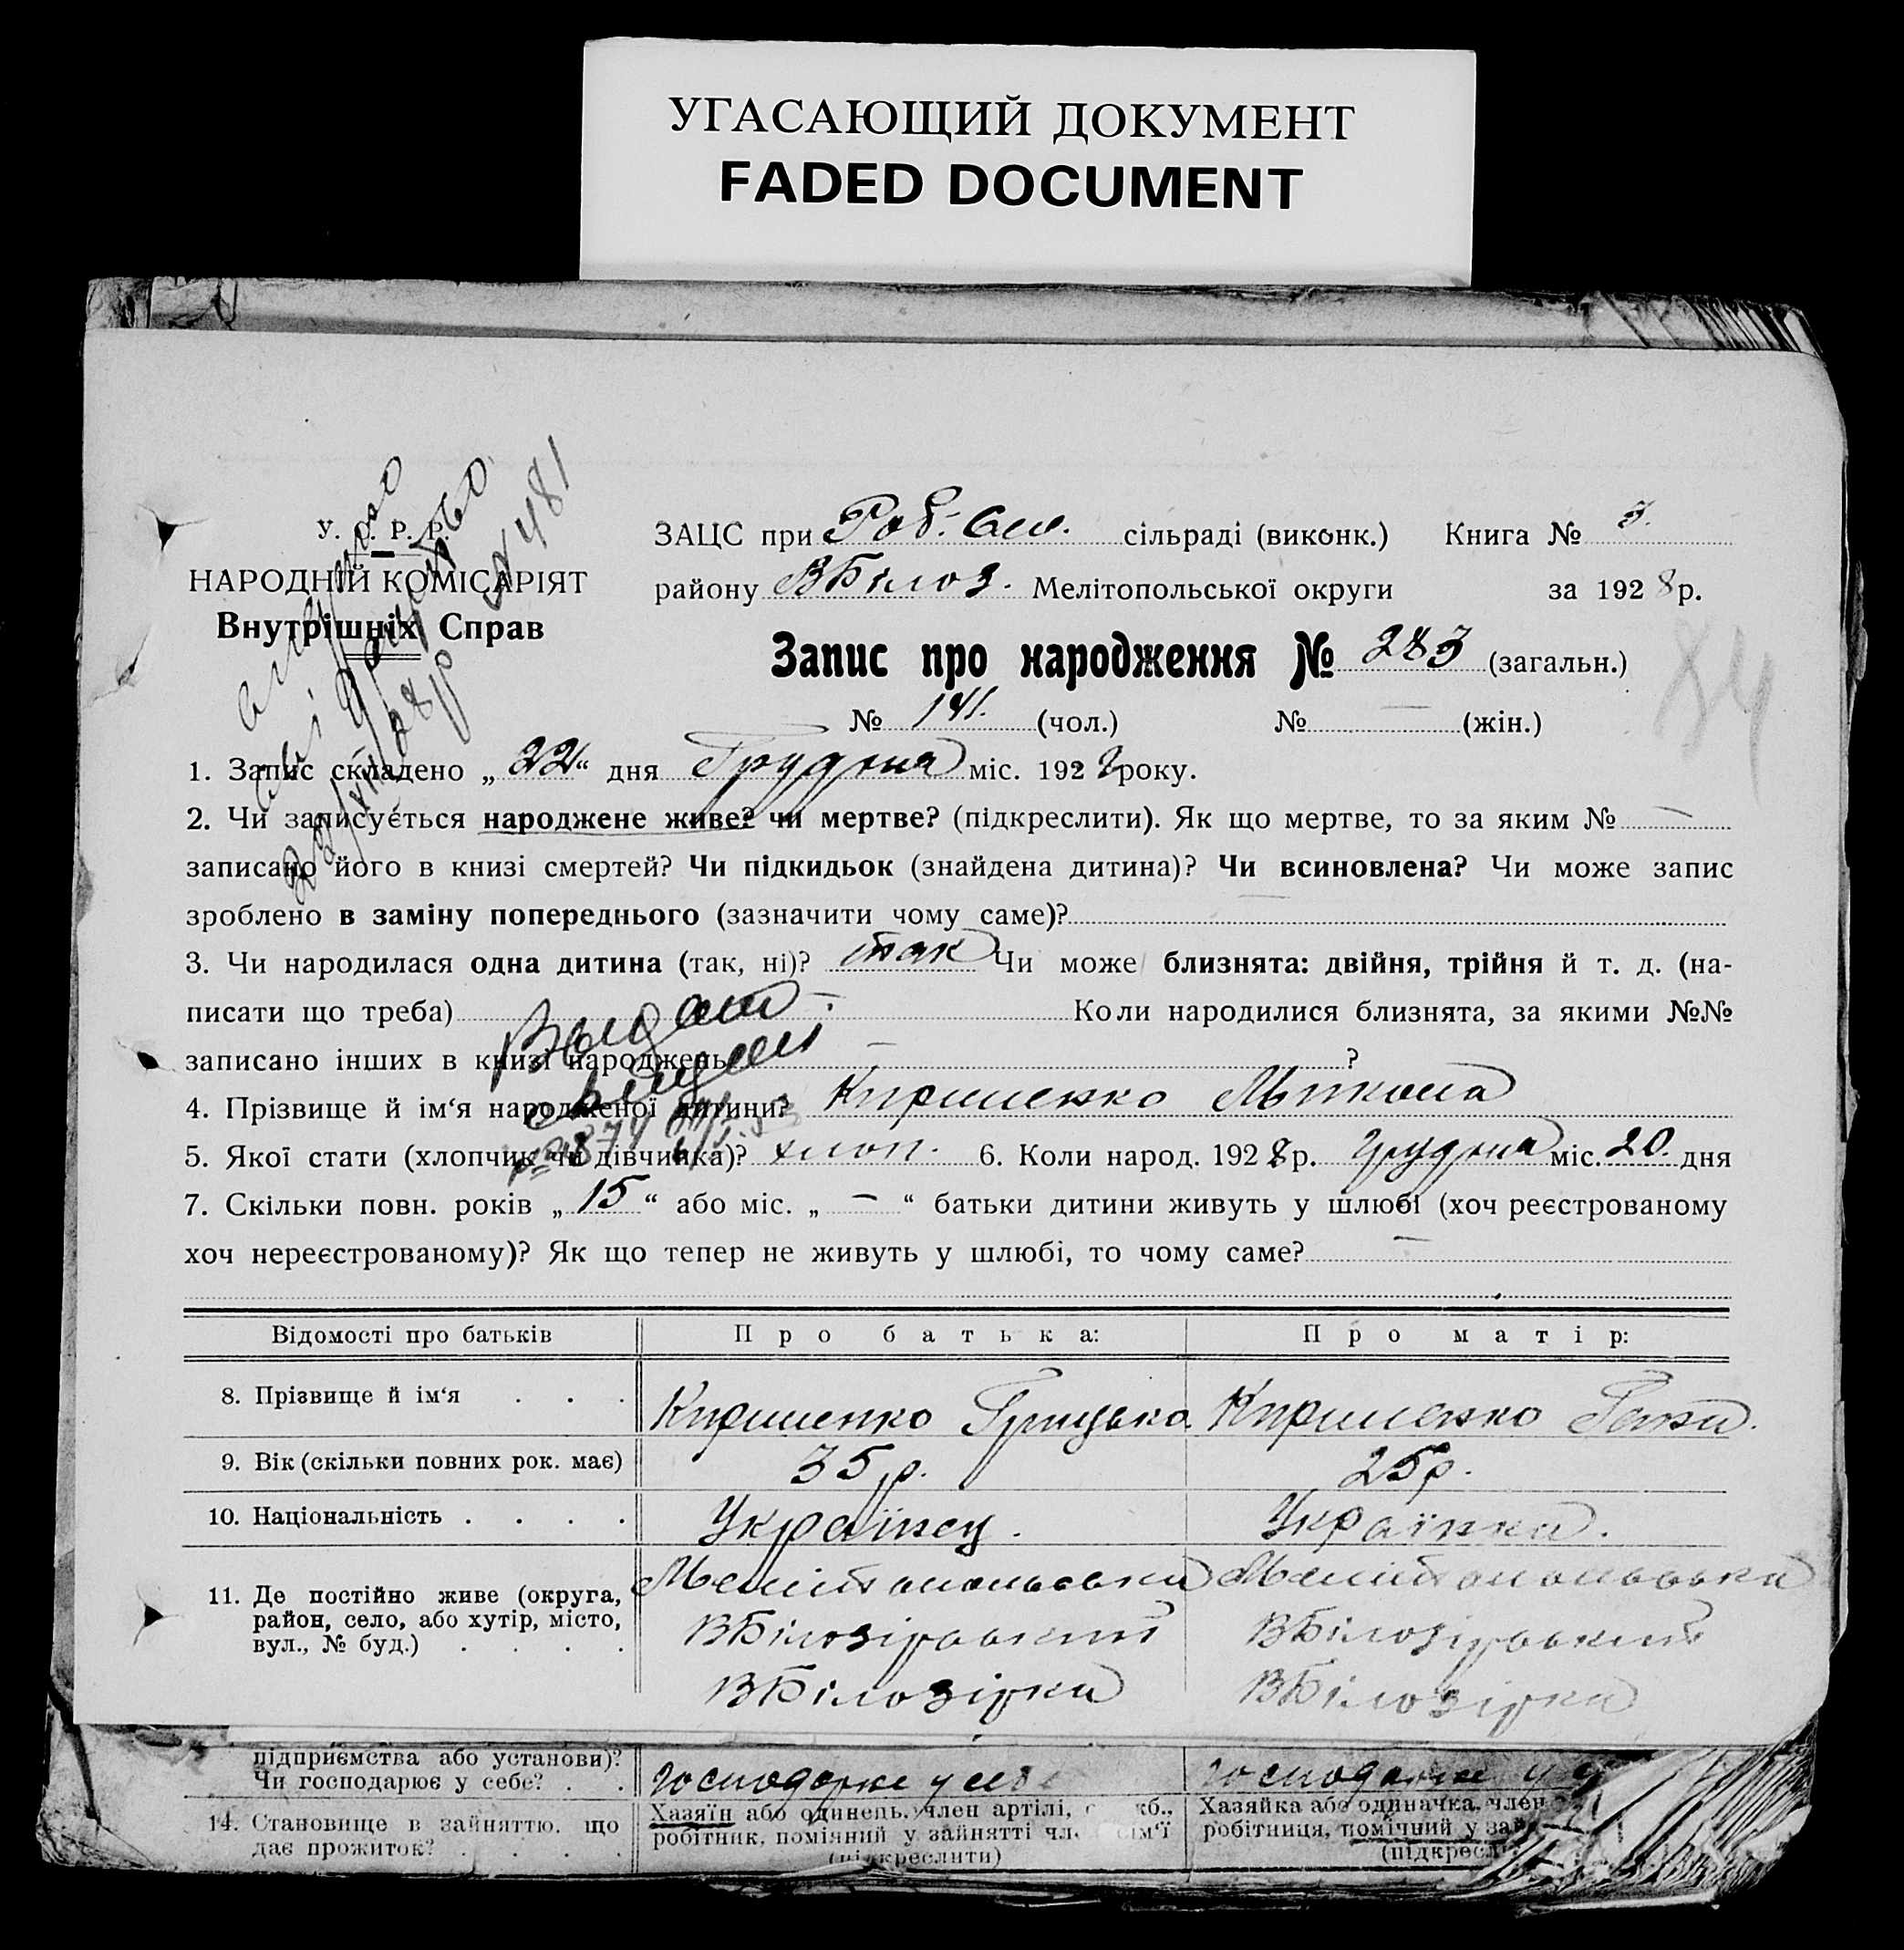 УГАСАЮЩИЙ ДОКУМЕНТ
FADED DOCUMENT
У. С. Р. Р.
НАРОДНІЙ КОМІСАРІЯТ
Внутрішніх Справ
№ 481
ЗАЦС при Роб. Сел. сільраді (виконк.) Книга № 3.
району ВБілоз. Мелітопольської округи за 1928 р.
Запис про народження № 283 (загальн.)
№ 141. (чол.) № — (жін.)
84
1. Запис складено „22“ дня Грудня міс. 1928 року.
2. Чи записується народжене живе? чи мертве? (підкреслити). Як що мертве, то за яким № —
записано його в книзі смертей? Чи підкидьок (знайдена дитина)? Чи всиновлена? Чи може запис
зроблено в заміну попереднього (зазначити чому саме)? —
3. Чи народилася одна дитина (так, ні)? так Чи може близнята: двійня, трійня й т. д. (на-
писати що треба) — Коли народилися близнята, за якими №№
записано інших в книзі народжень — ?
Выдано
4. Прізвище й ім‘я народженої дитини? Кириленко Микола
5. Якої стати (хлопчик чи дівчинка)? хлоп. 6. Коли народ. 1928 р. Грудня міс. 20. дня
7. Скільки повн. років „15“ або міс. „—“ батьки дитини живуть у шлюбі (хоч реєстрованому
хоч нереєстрованому)? Як що тепер не живуть у шлюбі, то чому саме? —
Відомості про батьків Про батька: Про матір:
8. Прізвище й ім‘я . . . Кириленко Грицько Кириленко
9. Вік (скільки повних рок. має) 35 р. 25 р.
10. Національність . . . . Українец. Українка.
11. Де постійно живе (округа, район, село, або хутір, місто, вул., № буд.) . . . .
Мелітопольська Мелітопольська
ВБілозірський ВБілозірський
ВБілозірка ВБілозірка
підприємства або установи)?
Чи господарює у себе? . . Господарює у себе Господарює у
14. Становище в зайняттю, що дає прожиток? . . . .
Хазяїн або одинець, член артілі, Хазяйка або одиначка, член
робітник, помічний у зайнятті робітниця, помічний у
(підкреслити) (підкресл